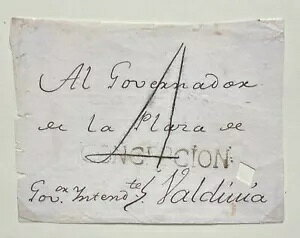 Al Governador
de la Plaza de
CONCEPCION
Gov.or Intend.te Valdivia